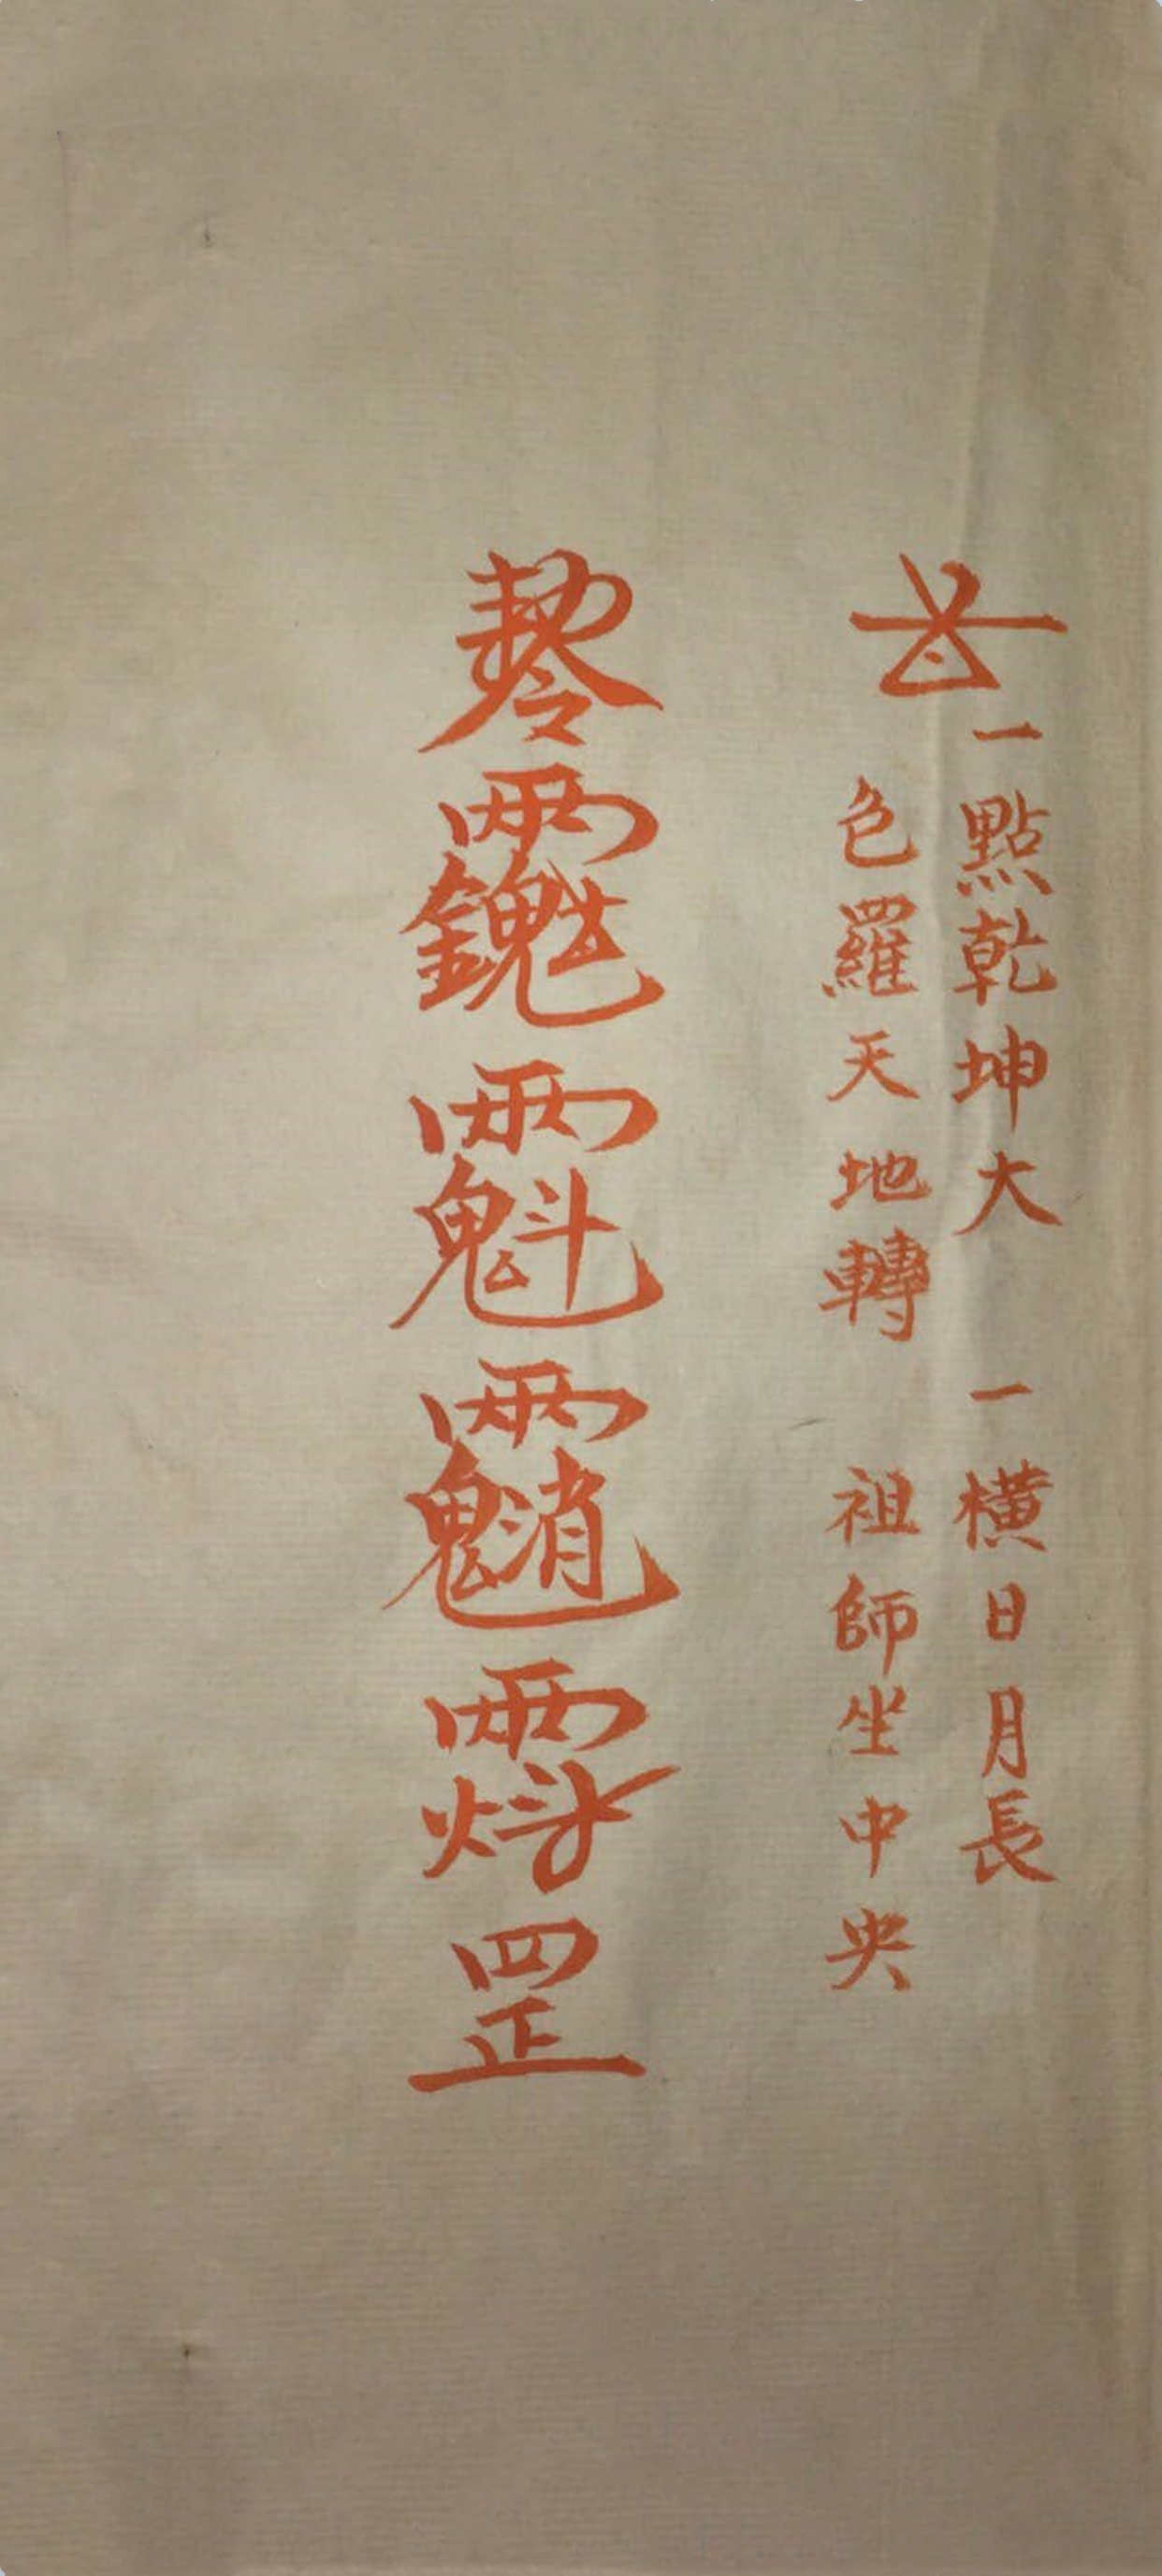 一點乾坤大 一橫日月長
色羅天地轉 祖師坐中央
罡